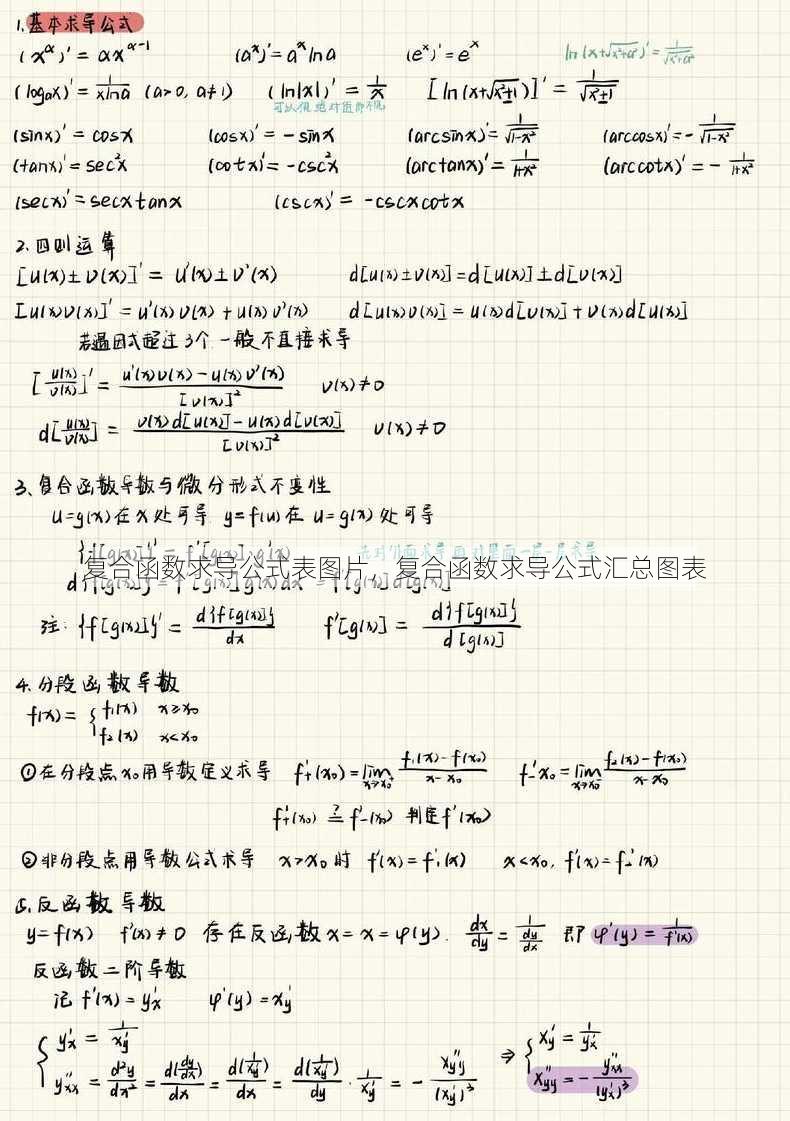 1.基本求导公式
(x^α)' = αx^(α-1) (a^x)' = a^x ln a (e^x)' = e^x ln(x+√(x²+a²))' = 1/√(x²+a²)
(log_a x)' = 1/(x ln a) (a>0, a≠1) (ln|x|)' = 1/x [ln(x+√(x²±1))]' = 1/√(x²±1)
(sinx)' = cosx (cosx)' = -sinx (arcsinx)' = 1/√(1-x²) (arccosx)' = -1/√(1-x²)
(tanx)' = sec²x (cotx)' = -csc²x (arctanx)' = 1/(1+x²) (arccotx)' = -1/(1+x²)
(secx)' = secxtanx (cscx)' = -cscxcotx
2.四则运算
[u(x)±v(x)]' = u'(x)±v'(x) d[u(x)±v(x)] = d[u(x)]±d[v(x)]
[u(x)v(x)]' = u'(x)v(x) + u(x)v'(x) d[u(x)v(x)] = u(x)d[v(x)] + v(x)d[u(x)]
若遇因式超过3个,一般不直接求导
[u(x)/v(x)]' = (u'(x)v(x)-u(x)v'(x))/[v(x)]² v(x)≠0
d[u(x)/v(x)] = (v(x)d[u(x)]-u(x)d[v(x)])/[v(x)]² v(x)≠0
3、复合函数导数与微分形式不变性
u=g(x)在x处可导 y=f(u)在u=g(x)处可导
{f[g(x)]}' = f'[g(x)]g'(x)
复合函数求导公式表图片，复合函数求导公式汇总图表
d{f[g(x)]} = f'[g(x)]g'(x)dx = f'[g(x)]d[g(x)]
注: {f[g(x)]}' = d{f[g(x)]}/dx f'[g(x)] = d{f[g(x)]}/d[g(x)]
4.分段函数导数
f(x) = { f₁(x) x≥x₀
f₂(x) x<x₀
①在分段点x₀用导数定义求导 f'₊(x₀) = lim x→x₀⁺ (f₁(x)-f(x₀))/(x-x₀) f'₋x₀ = lim x→x₀⁻ (f₂(x)-f(x₀))/(x-x₀)
f'₊(x₀) ≟ f'₋(x₀) 判定f'(x₀)
②非分段点用导数公式求导 x>x₀时 f'(x)=f'₁(x) x<x₀, f'(x)=f'₂(x)
5.反函数导数
y=f(x) f'(x)≠0 存在反函数x=x=φ(y). dx/dy = 1/(dy/dx) 即 φ'(y) = 1/f'(x)
反函数二阶导数
记 f'(x)=y'x φ'(y)=x'y
{ y'x = 1/x'y ⇒ { x'y = 1/y'x
y''xx = d²y/dx² = d(dy/dx)/dx = d(1/x'y)/dx = d(1/x'y)/dy · 1/x'y = - x''yy/(x'y)³ x''yy = - y''xx/(y'x)³